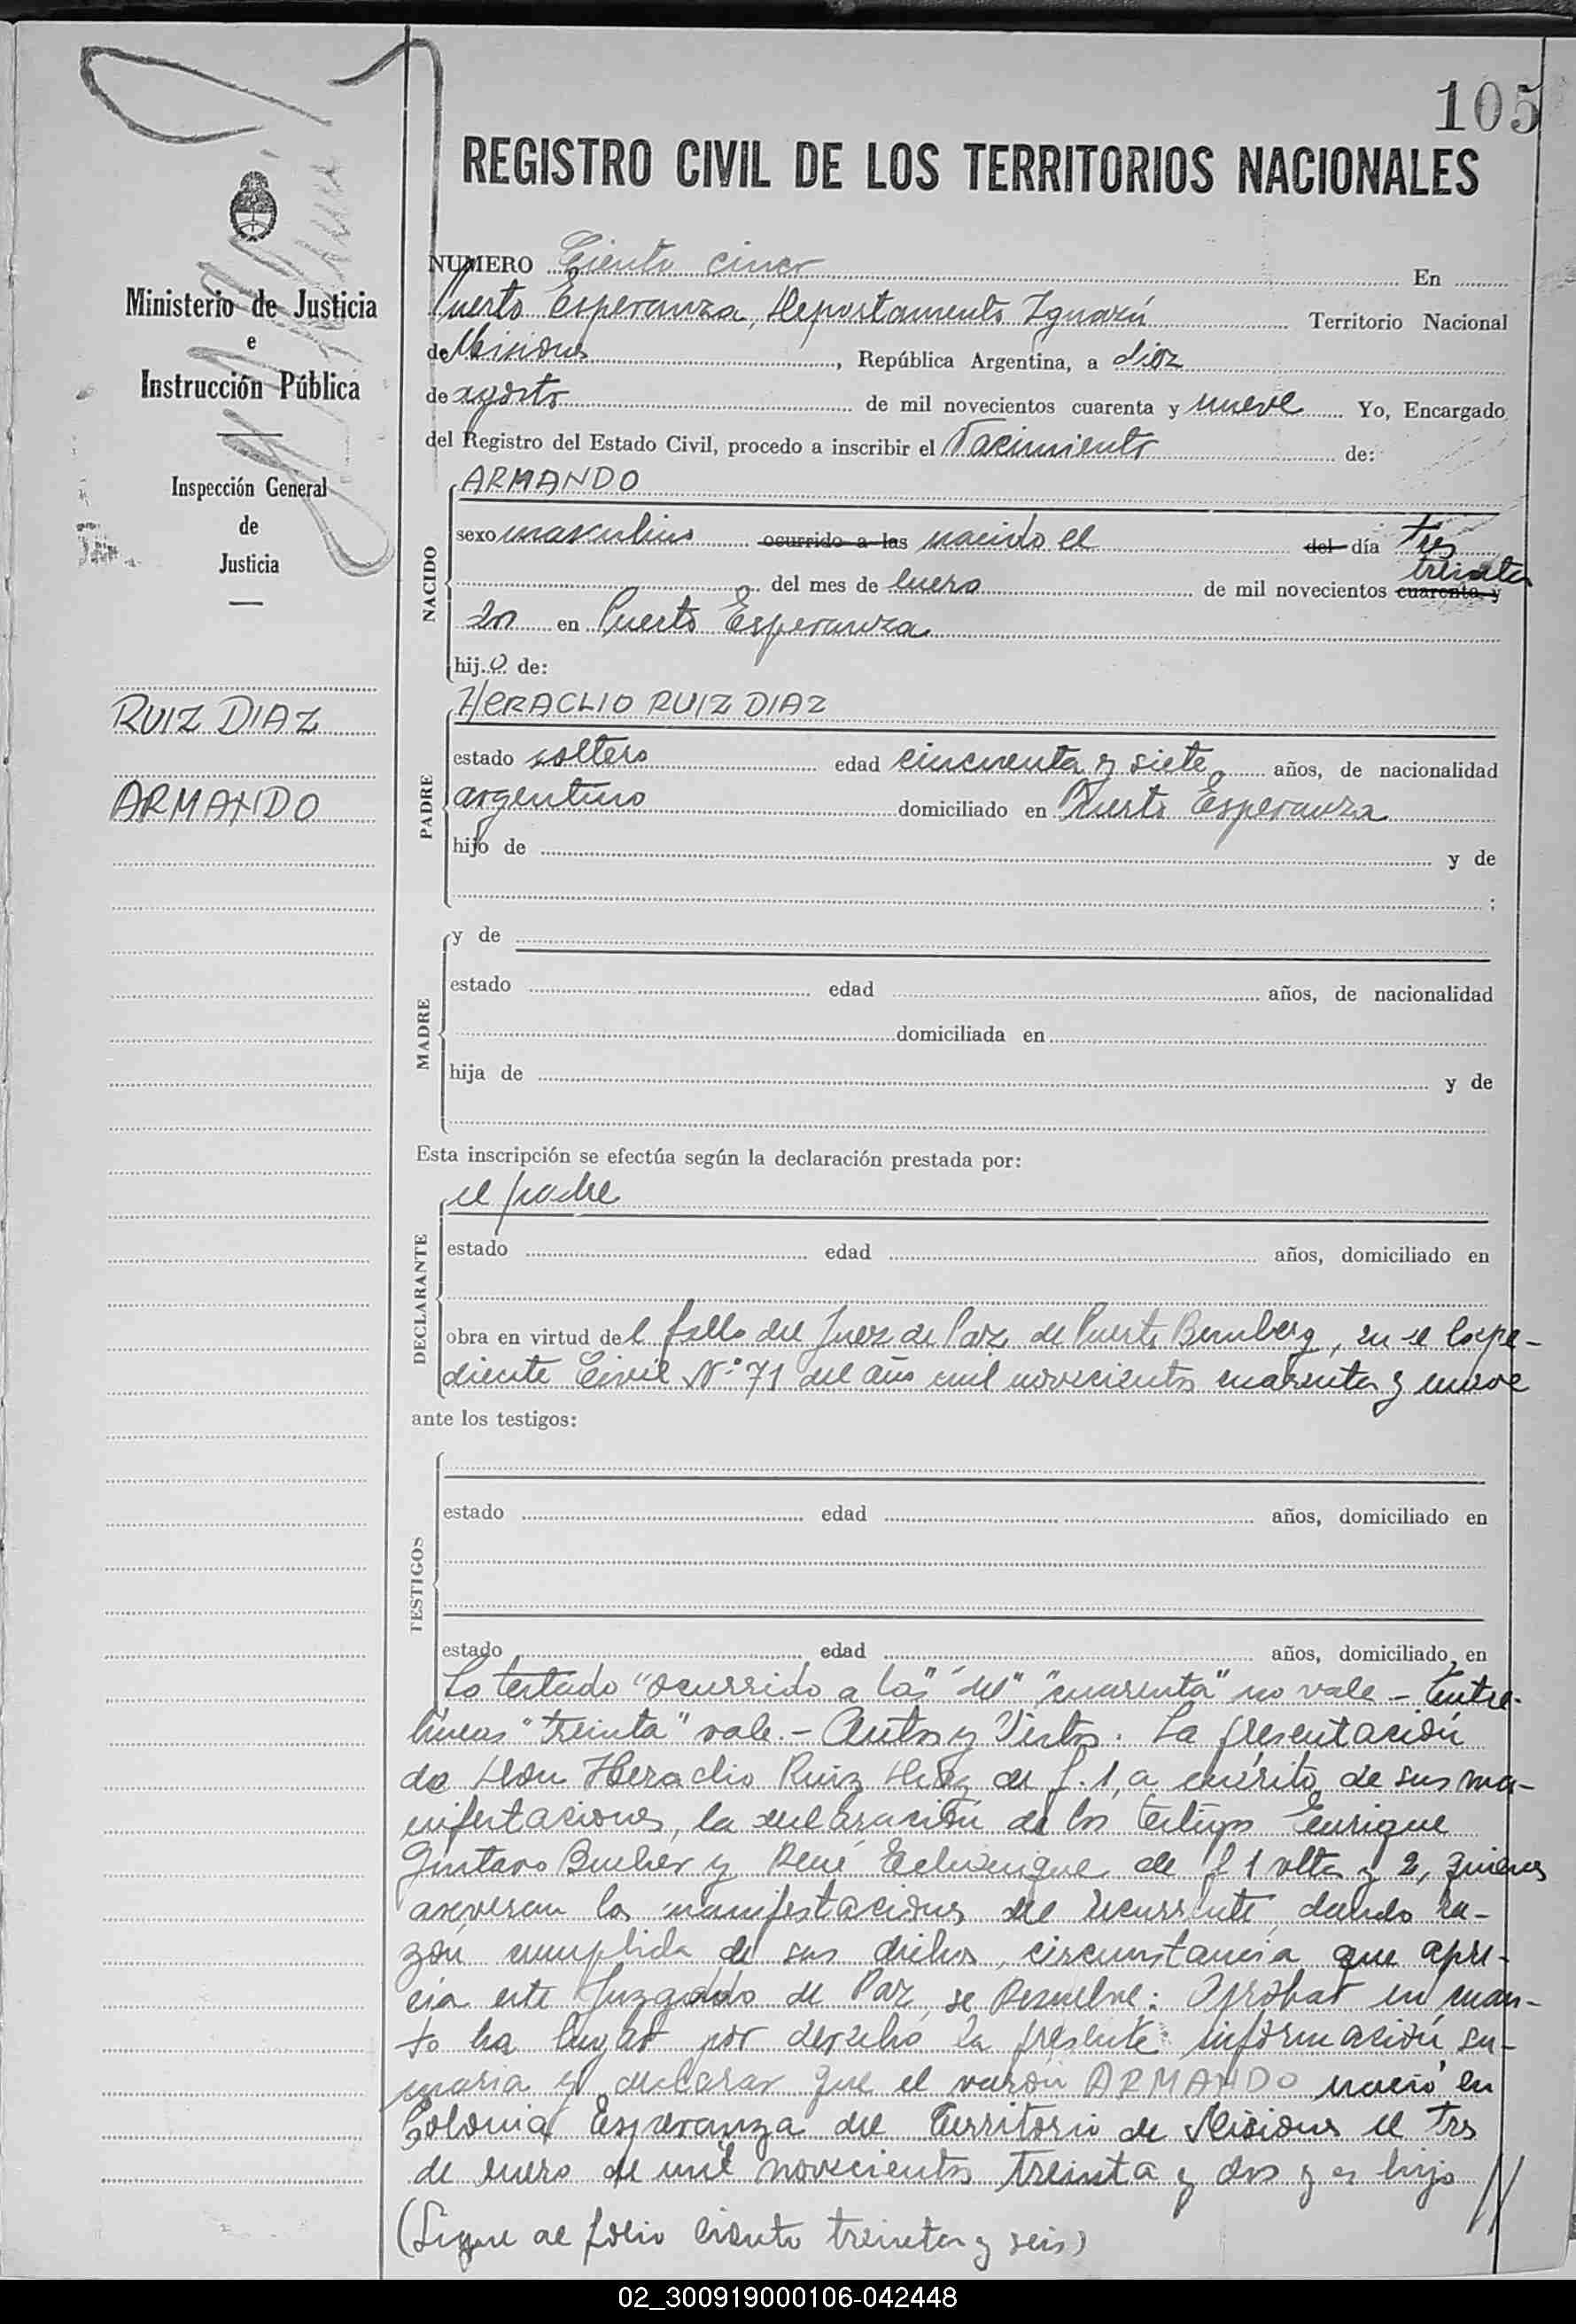 105
REGISTRO CIVIL DE LOS TERRITORIOS NACIONALES
Ministerio de Justicia
e
Instrucción Pública
Inspección General
de
Justicia
RUIZ DIAZ
ARMANDO
NUMERO Ciento cinco En
Puerto Esperanza, Departamento Iguazú Territorio Nacional
de Misiones, República Argentina, a diez
de agosto de mil novecientos cuarenta y nueve Yo, Encargado
del Registro del Estado Civil, procedo a inscribir el Nacimiento de:
NACIDO
ARMANDO
sexo masculino ocurrido a las nacido el del día tres
treinta
del mes de enero de mil novecientos cuarenta y
dos en Puerto Esperanza
hijo de:
PADRE
HERACLIO RUIZ DIAZ
estado soltero edad cincuenta y siete años, de nacionalidad
argentino domiciliado en Puerto Esperanza
hijo de y de
;
MADRE
y de
estado edad años, de nacionalidad
domiciliada en
hija de y de
Esta inscripción se efectúa según la declaración prestada por:
DECLARANTE
el padre
estado edad años, domiciliado en
obra en virtud del fallo del Juez de Paz de Puerto Bemberg, en el Expe-
diente Civil N.° 71 del año mil novecientos cuarenta y nueve
ante los testigos:
TESTIGOS
estado edad años, domiciliado en
estado edad años, domiciliado en
Lo testado "ocurrido a las" "del" "cuarenta" no vale - Entre-
líneas "treinta" vale. - Autos y Vistos: La presentación
de Don Heraclio Ruiz Diaz de f. 1, a mérito de sus ma-
nifestaciones, la declaración de los testigos Enrique
Gustavo Bucher y René de f 1 vlta y 2, quienes
aseveran las manifestaciones del recurrente, dando ra-
zón cumplida de sus dichos, circunstancia que apre-
cia este Juzgado de Paz, se Resuelve: Aprobar en cuan-
to ha lugar por derecho la presente información su-
maria y declarar que el varón ARMANDO nació en
Colonia Esperanza del Territorio de Misiones el tres
de enero de mil novecientos treinta y dos y es hijo //
(Sigue al folio ciento treinta y seis)
02_300919000106-042448